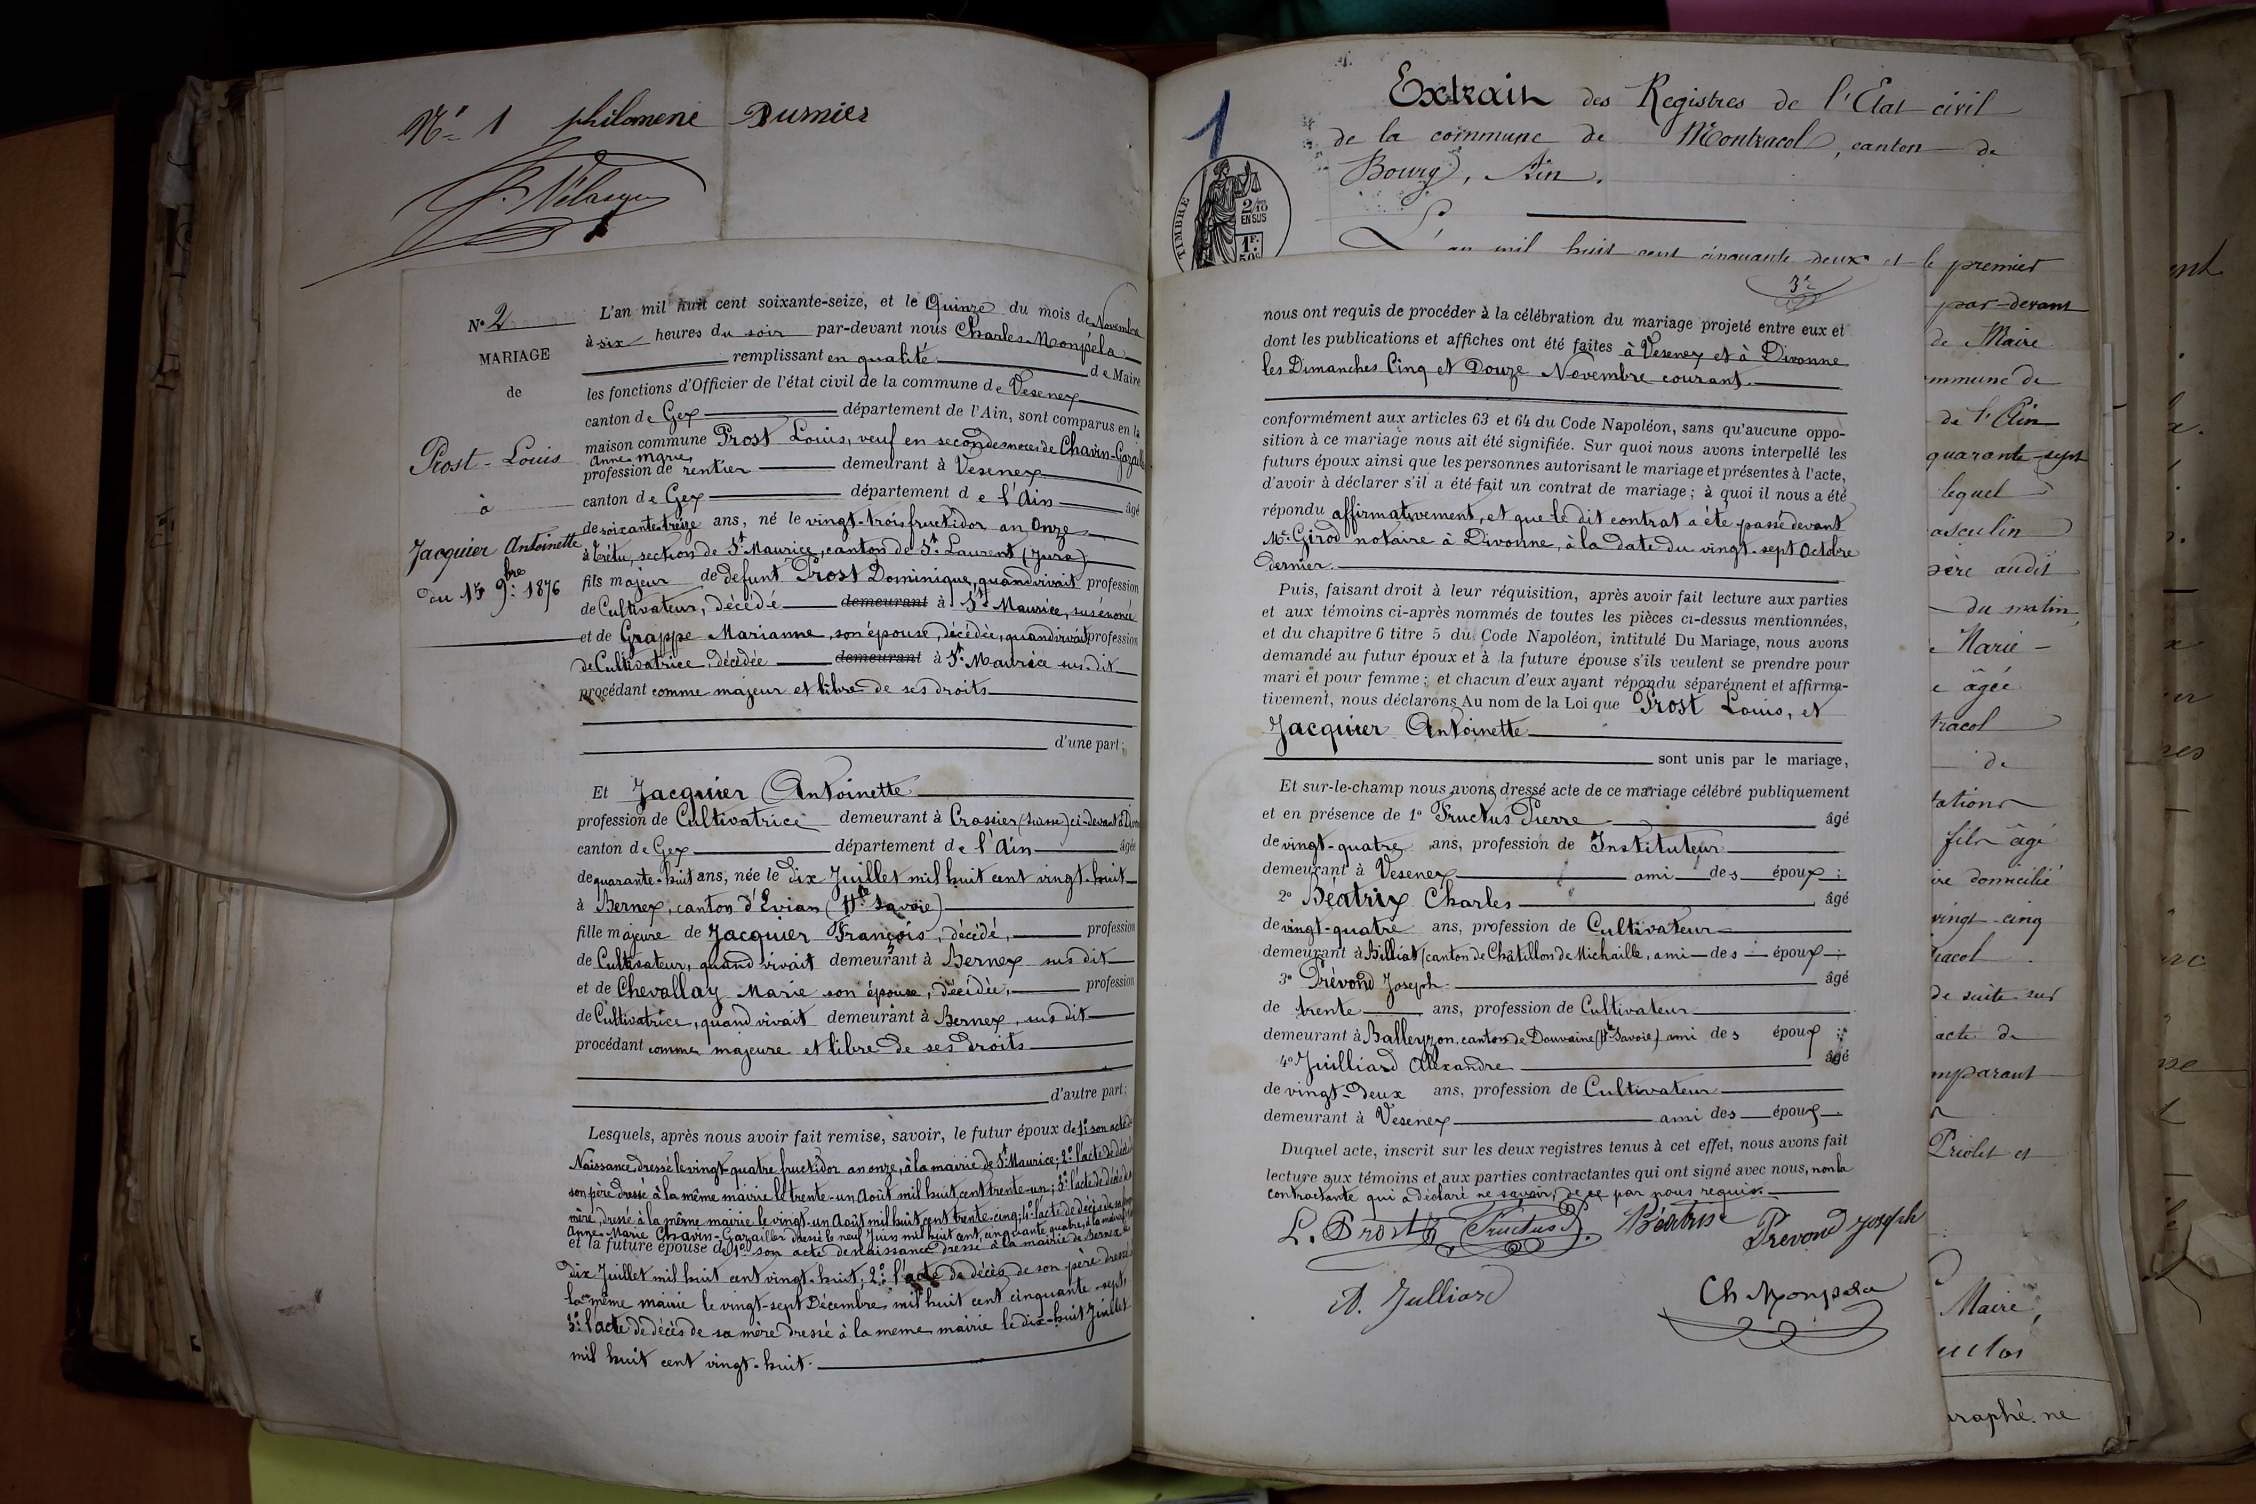 Nº 1 philomene Dumier
Nº 2
MARIAGE
de
Prost - Louis
à
Jacquier Antoinette
du 15 9bre 1876
L'an mil huit cent soixante-seize, et le Quinze du mois de Novembre
à six heures du soir par-devant nous Charles Monpéla
remplissant en qualité de Maire
les fonctions d'Officier de l'état civil de la commune de Vesenex
canton de Gex département de l'Ain, sont comparus en la
maison commune Prost Louis, veuf en secondes noces de Chavin-Gazailler
Anne Marie
profession de rentier demeurant à Vesenex
canton de Gex département de l'Ain âgé
de soixante-treize ans, né le vingt-trois fructidor an Onze
à Crétu, section de St Maurice, canton de St Laurent (Jura)
fils majeur de defunt Prost Dominique, quand vivait profession
de Cultivateur, décédé demeurant à St Maurice, sus énoncé
et de Grappe Marianne, son épouse, décédée, quand vivait profession
de Cultivatrice, décédée demeurant à St Maurice sus-dit
procédant comme majeur et libre de ses droits
d'une part;
Et Jacquier Antoinette
profession de Cultivatrice demeurant à Crassier (Suisse) ci-devant à
canton de Gex département de l'Ain âgée
de quarante-huit ans, née le dix Juillet mil huit cent vingt-huit
à Bernex, canton d'Evian (Hte Savoie)
fille majeure de Jacquier François, décédé, profession
de Cultivateur, quand vivait demeurant à Bernex sus dit
et de Chevallay Marie son épouse, décédée, profession
de Cultivatrice, quand vivait demeurant à Bernex, sus dit
procédant comme majeure et libre de ses droits
d'autre part;
Lesquels, après nous avoir fait remise, savoir, le futur époux de 1º son acte de
Naissance, dressé le vingt-quatre fructidor an onze, à la mairie de St Maurice; 2º l'acte de décès de
son père dressé à la même mairie le trente-un Août mil huit cent trente-un; 3º l'acte de décès de sa
mère, dressé à la même mairie le vingt-un Août mil huit cent trente-cinq; 4º l'acte de décès de
Anne-Marie Chavin-Gazailler dressé le neuf Juin mil huit cent cinquante quatre, à la mairie
et la future épouse de 1º son acte de naissance dressé à la mairie de Bernex le
dix Juillet mil huit cent vingt-huit; 2º l'acte de décès de son père dressé à
la même mairie le vingt-sept Décembre mil huit cent cinquante-sept,
3º l'acte de décès de sa mère dressé à la meme mairie le dix-huit Juillet
mil huit cent vingt-huit.
1
Extrait des Registres de l'Etat civil
de la commune de Montracol, canton de
Bourg, Ain.
TIMBRE
2/10
EN SUS
1F.
50c
L'an mil huit cent cinquante deux et le premier
3e
nous ont requis de procéder à la célébration du mariage projeté entre eux et
dont les publications et affiches ont été faites à Vesenex et à Divonne
les Dimanches Cinq et Douze Novembre courant.
conformément aux articles 63 et 64 du Code Napoléon, sans qu'aucune oppo-
sition à ce mariage nous ait été signifiée. Sur quoi nous avons interpellé les
futurs époux ainsi que les personnes autorisant le mariage et présentes à l'acte,
d'avoir à déclarer s'il a été fait un contrat de mariage; à quoi il nous a été
répondu affirmativement, et que le dit contrat a été passé devant
Me Girod notaire à Divonne, à la date du vingt-sept Octobre
dernier.
Puis, faisant droit à leur réquisition, après avoir fait lecture aux parties
et aux témoins ci-après nommés de toutes les pièces ci-dessus mentionnées,
et du chapitre 6 titre 5 du Code Napoléon, intitulé Du Mariage, nous avons
demandé au futur époux et à la future épouse s'ils veulent se prendre pour
mari et pour femme; et chacun d'eux ayant répondu séparément et affirma-
tivement, nous déclarons Au nom de la Loi que Prost Louis, et
Jacquier Antoinette
sont unis par le mariage,
Et sur-le-champ nous avons dressé acte de ce mariage célébré publiquement
et en présence de 1º Fructus Pierre âgé
de vingt-quatre ans, profession de Instituteur
demeurant à Vesenex ami des époux;
2º Béatrix Charles âgé
de vingt-quatre ans, profession de Cultivateur
demeurant à Billiat (canton de Châtillon de Michaille, ami des époux
3º Prévond Joseph âgé
de trente ans, profession de Cultivateur
demeurant à Balleyzon, canton de Douvaine (Hte Savoie) ami des époux;
4º Juilliard Alexandre âgé
de vingt-deux ans, profession de Cultivateur
demeurant à Vesenex ami des époux.
Duquel acte, inscrit sur les deux registres tenus à cet effet, nous avons fait
lecture aux témoins et aux parties contractantes qui ont signé avec nous, non la
contractante qui a déclaré ne savoir, de ce par nous requis.
L. Prost Fructus P. Béatrix Prevond Joseph
A. Julliard
Ch Monpela
par-devant
de Maire
commune de
de l'Ain
quarante-sept
lequel
masculin
père audit
du matin,
Marie -
e âgée
tracol
de
tations
fils âgé
ire domicilié
vingt-cinq
racol
de suite sur
acte de
mparant
Priolet et
Maire,
araphé. ne